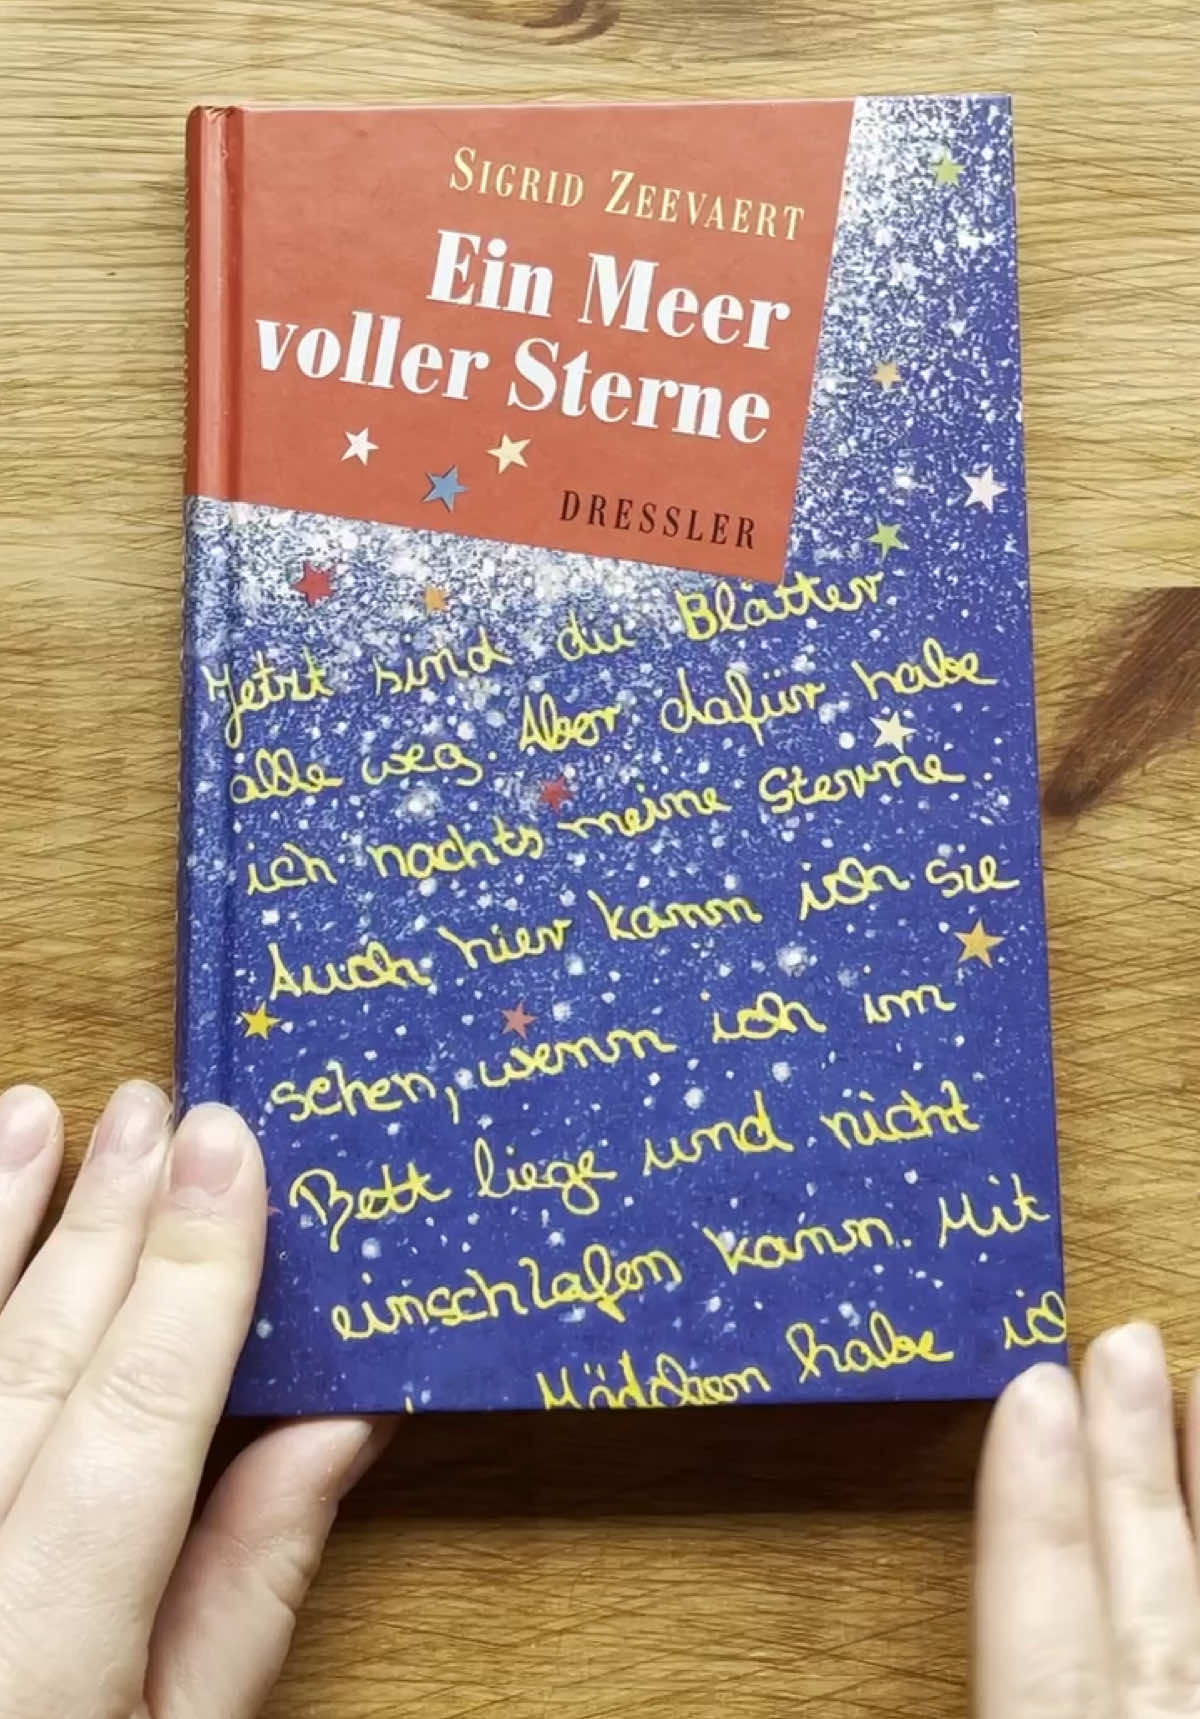 SIGRID ZEEVAERT
Ein Meer
voller Sterne
DRESSLER
Jetzt sind die Blätter
alle weg. Aber dafür habe
ich nachts meine Sterne.
Auch hier kann ich sie
sehen, wenn ich im
Bett liege und nicht
einschlafen kann. Mit
Mädchen habe ic